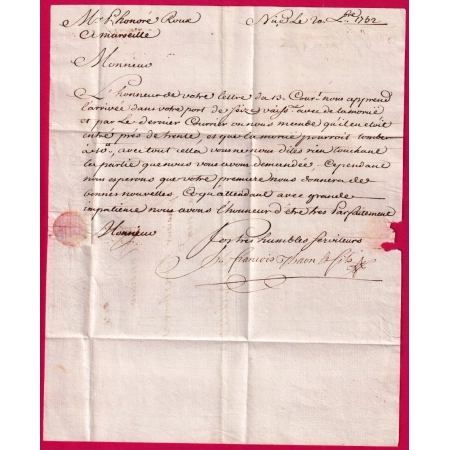 Mr. honoré Roux
Le 20 1762
a marseille
Monsieur
L'honneur de votre lettre du 13 Cour.t nous apprend
l'arrivée dans votre port de seize vaiss.x avec de la morüe
et par Le dernier Courier on nous mande qu'il en étoit
entré prés de trente, et que la morüe pourroit tomber
a 10.# avec tout cella vous ne nous dites rien touchant
les partie que nous vous avons demandées. Cependant
nous esperons que votre premiere nous donnera de
bonnes nouvelles, Ce qu'attendant avec grande
impatience nous avons l'honneur d'être tres Parfaitement
Monsieur
Vos tres humbles serviteurs
françois & fils